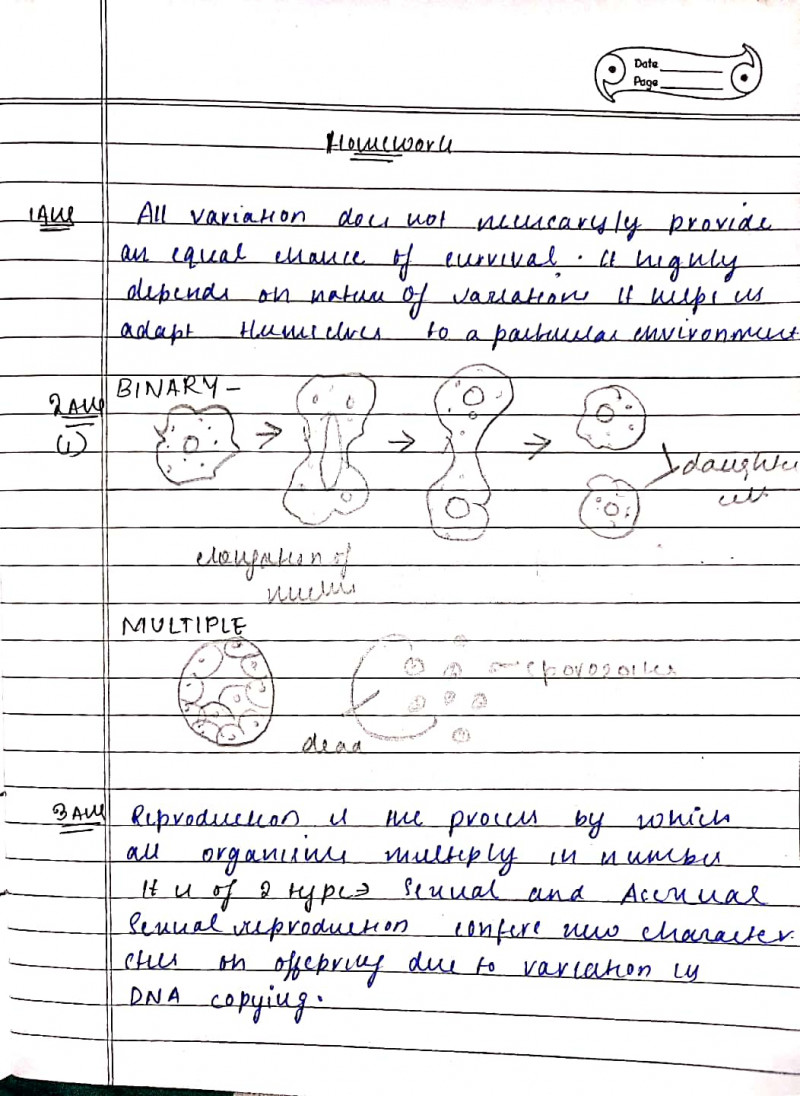 Date
Page
Homework
1Ans All variation does not neneccaryly provide
an equal chance of survival. It highly
depends on nature of variations it helps us
adapt themselves to a particular environment
2Ans BINARY -
(i)
daughter
cells
elongation of
nucleus
MULTIPLE
sporozoites
dead
3Ans Reproduction is the process by which
all organisms multiply in number
It is of 2 type → Sexual and Asexual
Sexual reproduction confers new character
on offspring due to variation in
DNA copying.